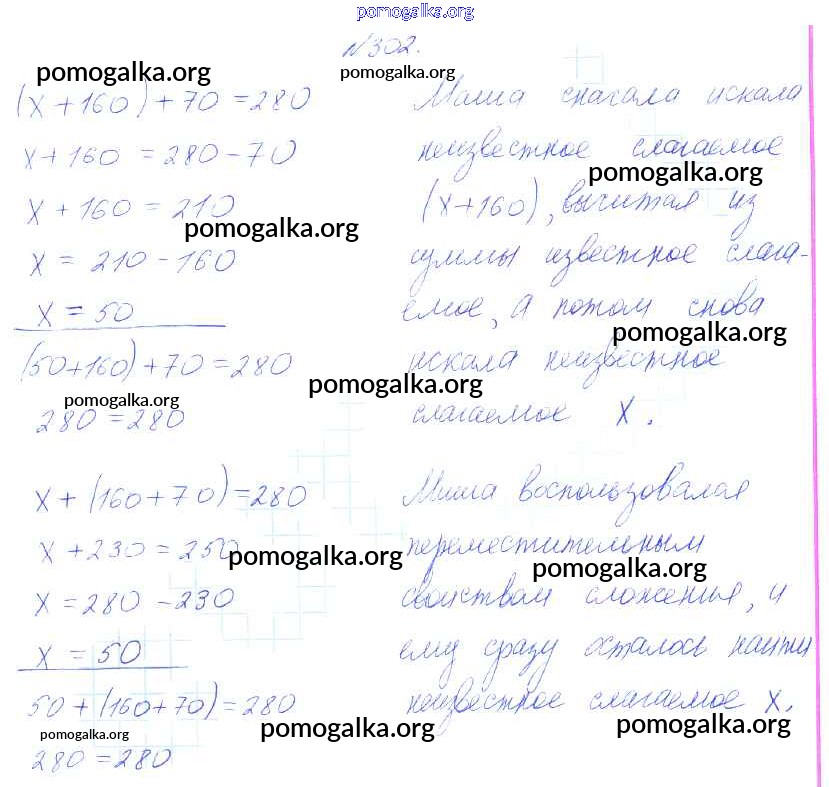 pomogalka.org
№302.
pomogalka.org
pomogalka.org
(x+160)+70=280
x+160=280-70
x+160=210
pomogalka.org
x=210-160
x=50
(50+160)+70=280
pomogalka.org
280=280
Маша сначала искала
неизвестное слагаемое
pomogalka.org
(x+160), вычитая из
суммы известное слага-
емое, а потом снова
pomogalka.org
искала неизвестное
pomogalka.org
слагаемое x.
x+(160+70)=280
x+230=250
pomogalka.org
x=280-230
x=50
50+(160+70)=280
pomogalka.org
pomogalka.org
280=280
Миша воспользовался
переместительным
pomogalka.org
свойством сложения, и
ему сразу осталось найти
неизвестное слагаемое x.
pomogalka.org